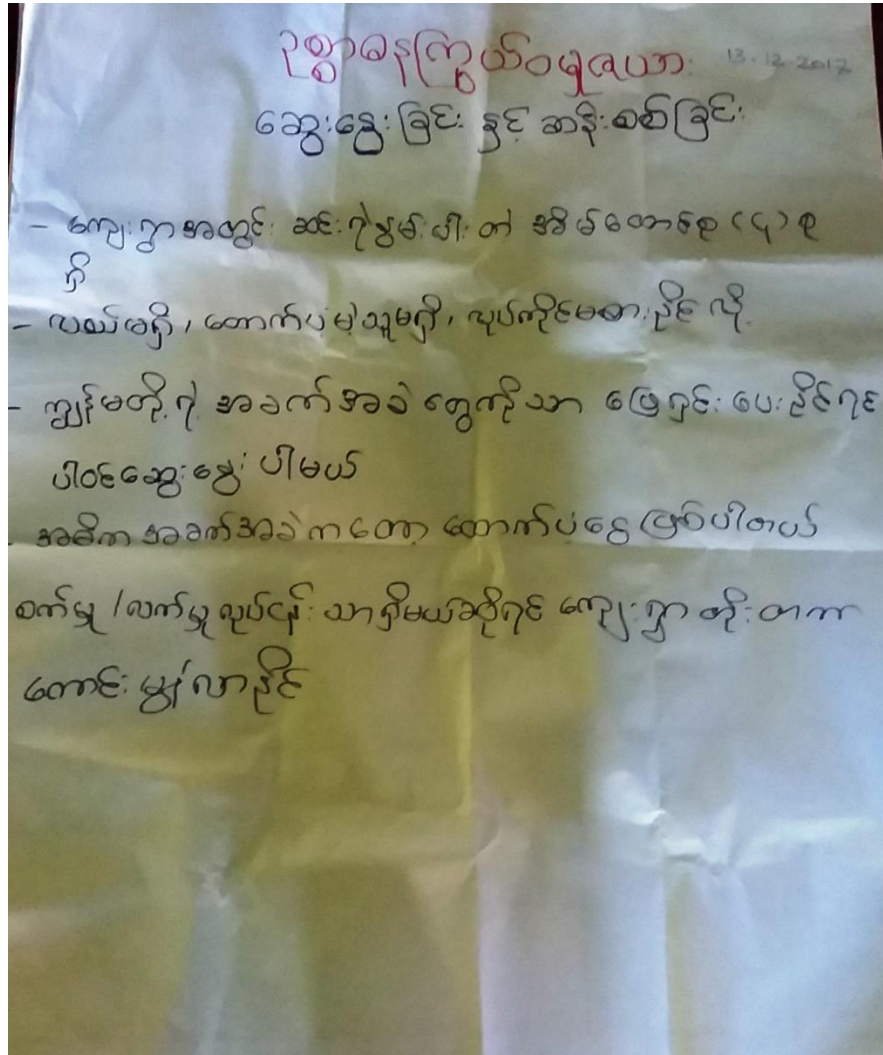 ဥစ္စာဓနကြွယ်ဝမှုဇယား 13.12.2017
ဆွေးနွေးခြင်း နှင့် ဆန်းစစ်ခြင်း
- ကျေးရွာအတွင်း ဆင်းရဲနွမ်းပါးတဲ့ အိမ်ထောင်စု (၄) စု
ရှိ
- လယ်မရှိ၊ ထောက်ပံ့မဲ့သူမရှိ၊ လုပ်ကိုင်မစားနိုင်လို့
- ကျွန်မတို့ရဲ့ အခက်အခဲတွေကိုသာ ဖြေရှင်းပေးနိုင်ရင်
ပါဝင်ဆွေးနွေးပါမယ်
- အဓိက အခက်အခဲကတော့ ထောက်ပံ့ငွေဖြစ်ပါတယ်
စက်မှု/လက်မှုလုပ်ငန်းသာရှိမယ်ဆိုရင် ကျေးရွာ တိုးတက
ကောင်းမွန်လာနိုင်